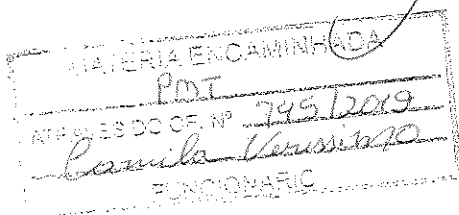 MATÉRIA ENCAMINHADA
PMI
ATRAVES DO OF. Nº 749/2019
Camila Verissimo
FUNCIONARIO